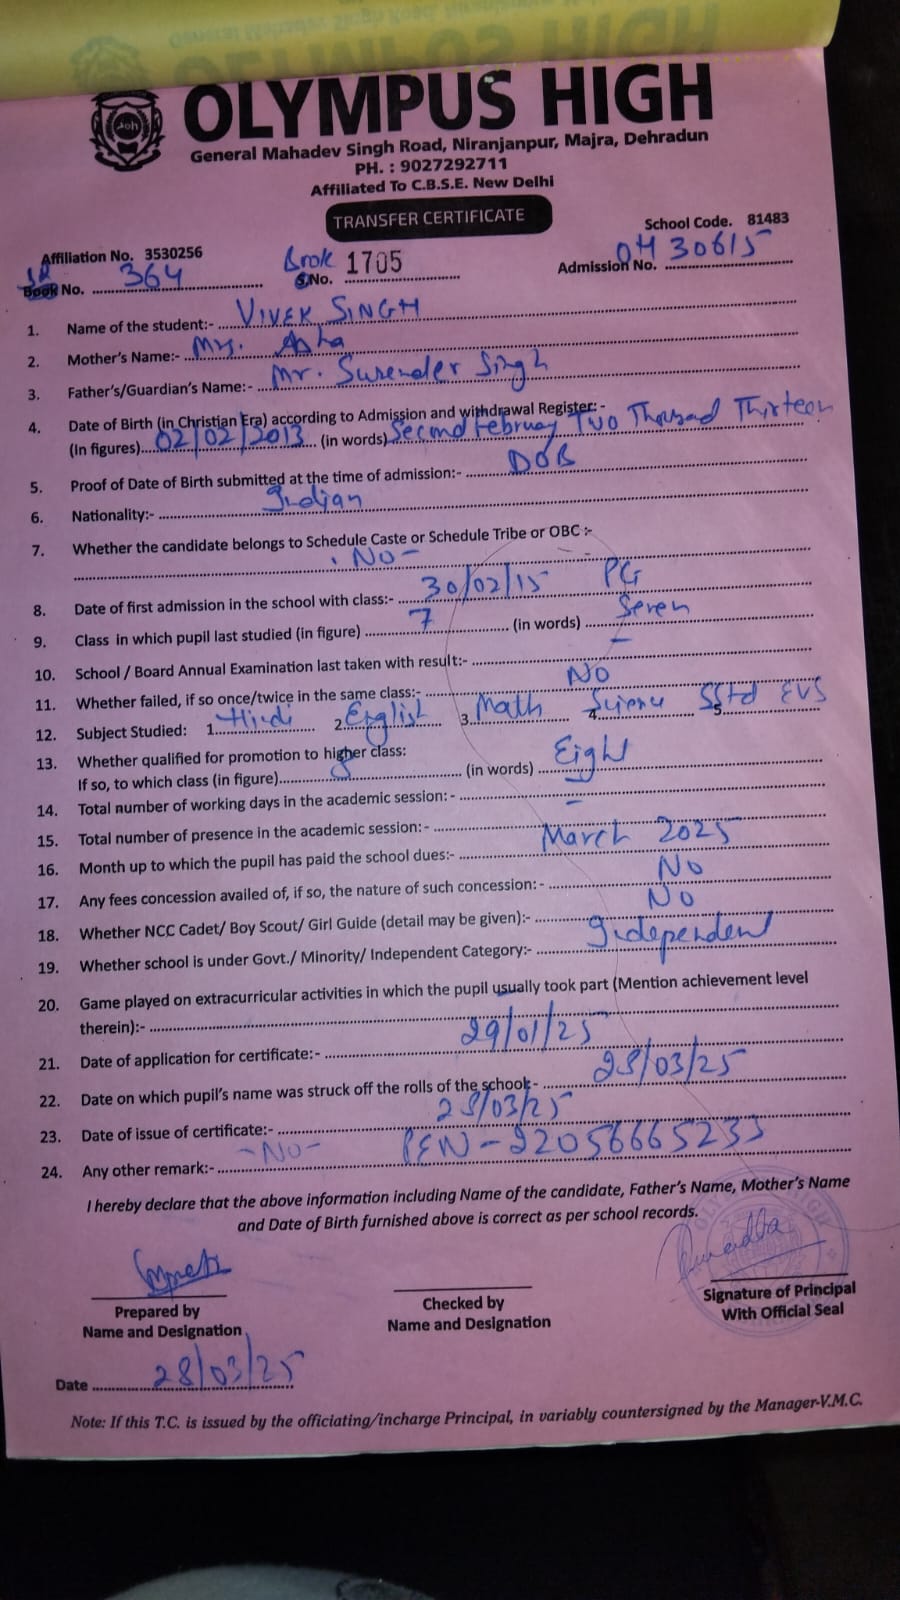 OLYMPUS HIGH
General Mahadev Singh Road, Niranjanpur, Majra, Dehradun
PH. : 9027292711
Affiliated To C.B.S.E. New Delhi
TRANSFER CERTIFICATE
School Code. 81483
Affiliation No. 3530256
SR Book No. 364 Book S.No. 1705 Admission No. OH 30615
1. Name of the student:- VIVEK SINGH
2. Mother's Name:- Mrs. Asha
3. Father's/Guardian's Name:- Mr. Surender Singh
4. Date of Birth (in Christian Era) according to Admission and withdrawal Register:-
(In figures) 02/02/2013 (in words) Second February Two Thousand Thirteen
5. Proof of Date of Birth submitted at the time of admission:- DOB
6. Nationality:- Indian
7. Whether the candidate belongs to Schedule Caste or Schedule Tribe or OBC :-
No -
8. Date of first admission in the school with class:- 30/02/15 PG
9. Class in which pupil last studied (in figure) 7 (in words) Seven
10. School / Board Annual Examination last taken with result:- -
11. Whether failed, if so once/twice in the same class:- No
12. Subject Studied: 1. Hindi 2. English 3. Math 4. Science 5. SStd EVS
13. Whether qualified for promotion to higher class:
If so, to which class (in figure) 8 (in words) Eight
14. Total number of working days in the academic session: - -
15. Total number of presence in the academic session:- -
16. Month up to which the pupil has paid the school dues:- March 2025
17. Any fees concession availed of, if so, the nature of such concession: - No
18. Whether NCC Cadet/ Boy Scout/ Girl Guide (detail may be given):- No
19. Whether school is under Govt./ Minority/ Independent Category:- Independent
20. Game played on extracurricular activities in which the pupil usually took part (Mention achievement level
therein):-
21. Date of application for certificate:- 29/01/25
22. Date on which pupil's name was struck off the rolls of the school:- 28/03/25
23. Date of issue of certificate:- 28/03/25
24. Any other remark:- -No- PEN-22056665233
I hereby declare that the above information including Name of the candidate, Father's Name, Mother's Name
and Date of Birth furnished above is correct as per school records.
Prepared by
Name and Designation
Checked by
Name and Designation
Signature of Principal
With Official Seal
Date 28/03/25
Note: If this T.C. is issued by the officiating/incharge Principal, in variably countersigned by the Manager-V.M.C.